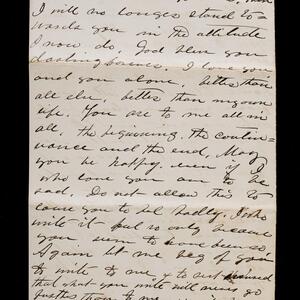 I will no longer stand to-
wards you in the attitude
I now do. God bless you
darling
I love you
and you alone, better than
all else, better than my own
life. You are to me all in
all, the beginning, the contin-
uance and the end. May
you be happy, even if I
who love you am to be
sad. Do not allow this to
cause you to feel badly. I
write it
only because
you seem to have been so
Again let me beg of you
to write to me, & to rest
that what you write will never go
further than to me